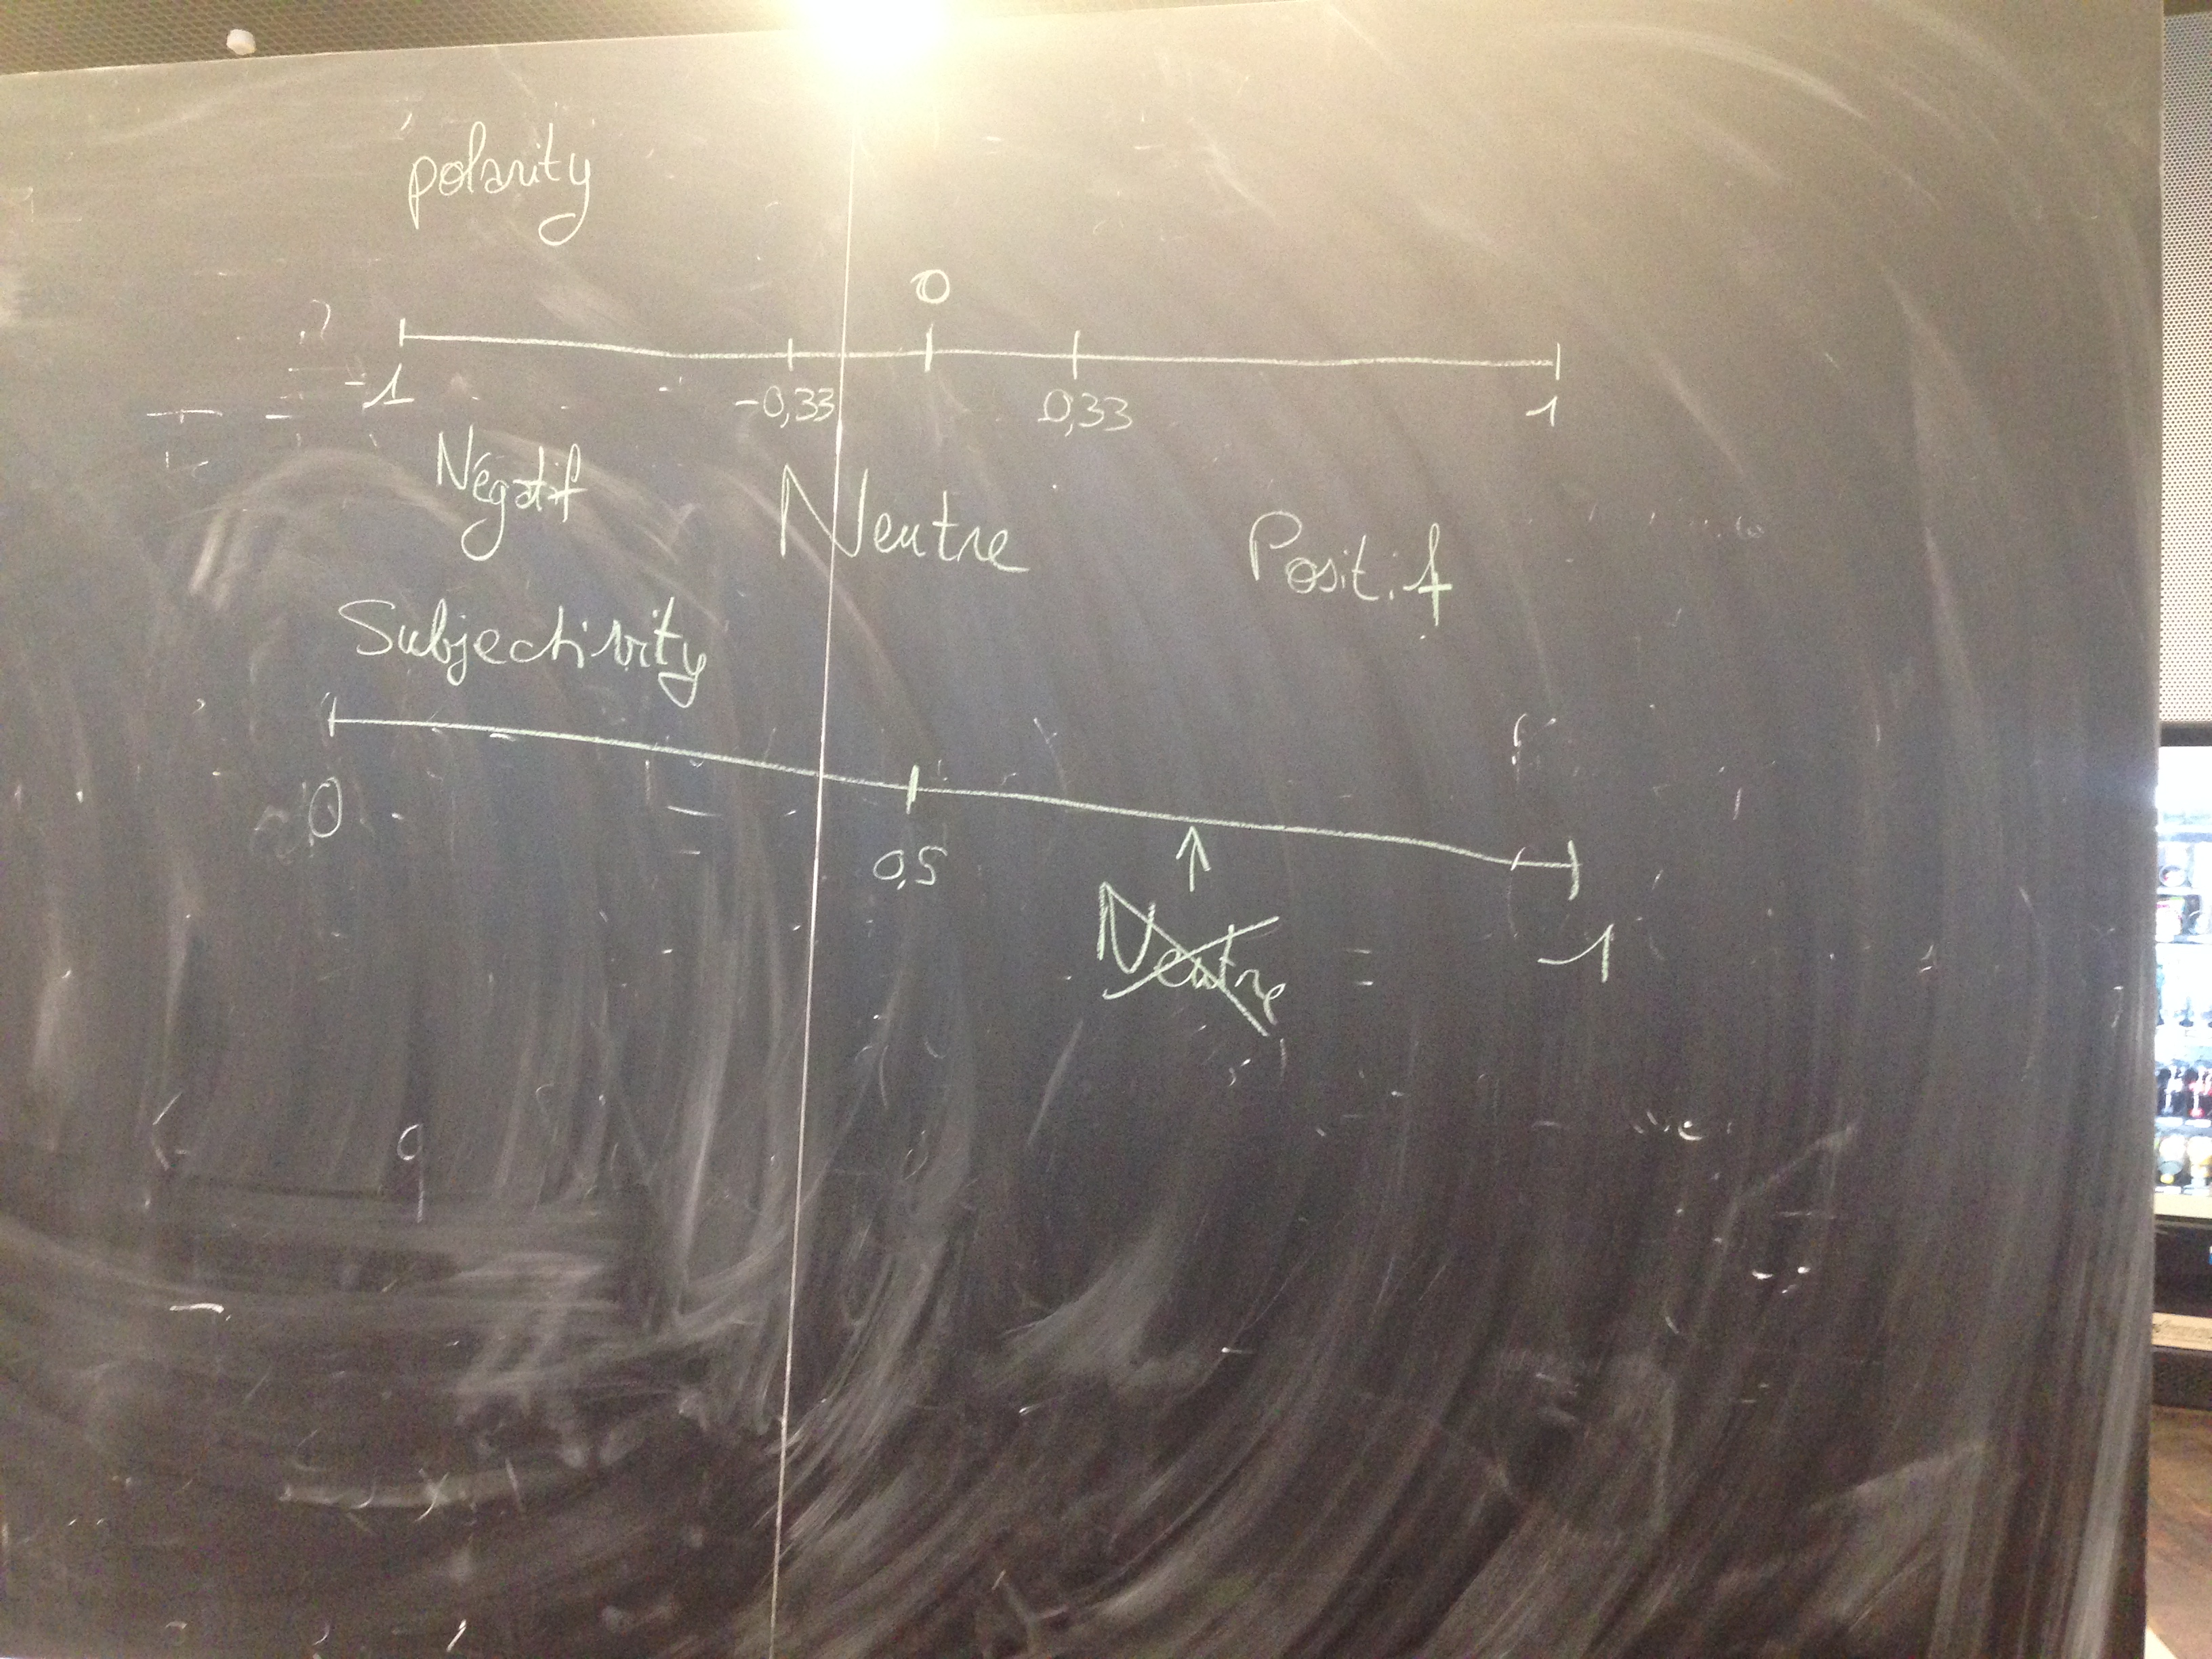 polarity
0
-1 -0,33 0,33 1
Négatif Neutre Positif
Subjectivity
0 0,5 1
Neutre